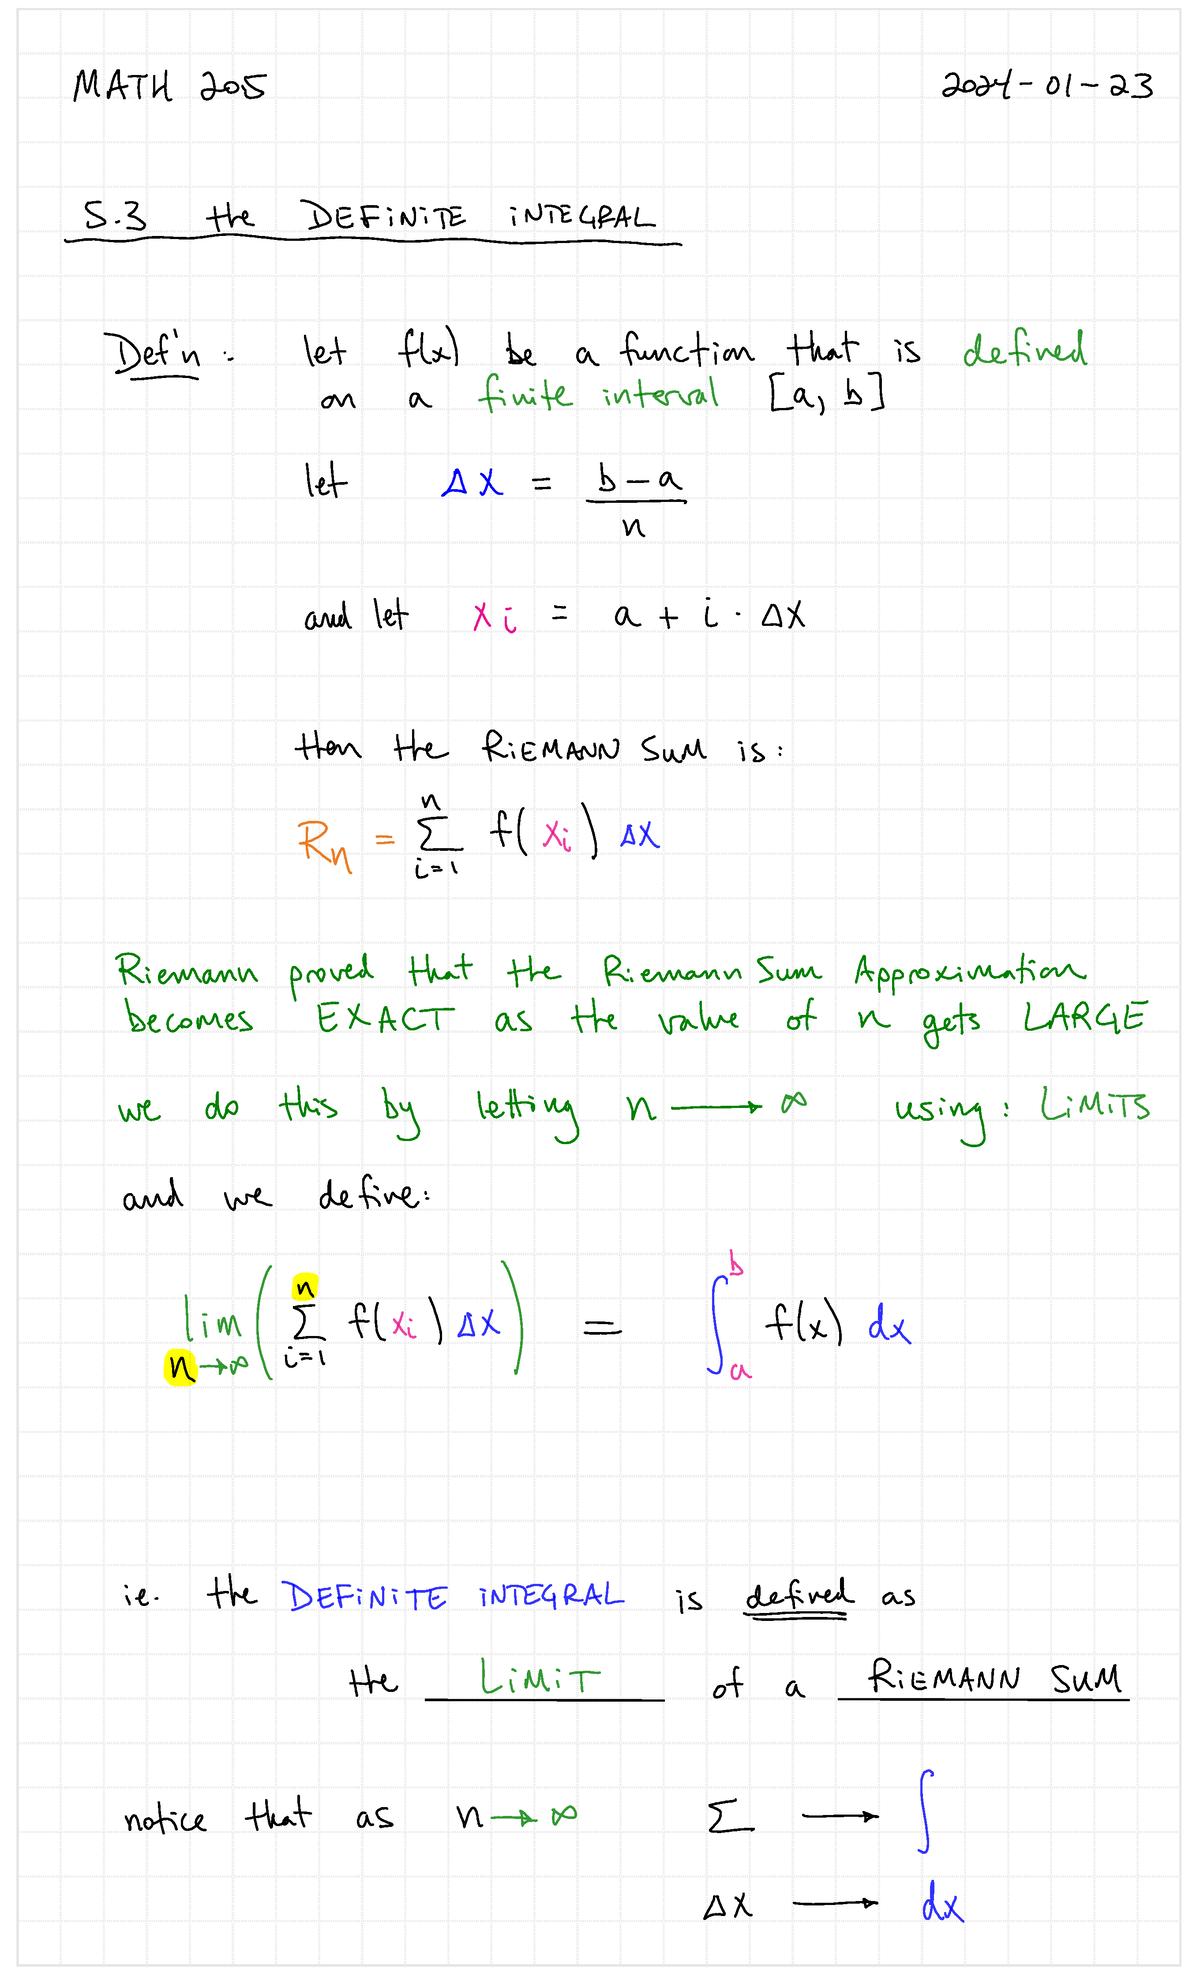 MATH 205 2024-01-23
5.3 the DEFINITE INTEGRAL
Def'n: let f(x) be a function that is defined
on a finite interval [a, b]
let Δx = (b-a)/n
and let xi = a + i · Δx
then the RIEMANN SUM is:
Rn = Σ_{i=1}^{n} f(xi) Δx
Riemann proved that the Riemann Sum Approximation
becomes EXACT as the value of n gets LARGE
we do this by letting n → ∞ using: LIMITS
and we define:
lim_{n→∞} ( Σ_{i=1}^{n} f(xi) Δx ) = ∫_a^b f(x) dx
ie. the DEFINITE INTEGRAL is defined as
the LIMIT of a RIEMANN SUM
notice that as n → ∞ Σ → ∫
Δx → dx